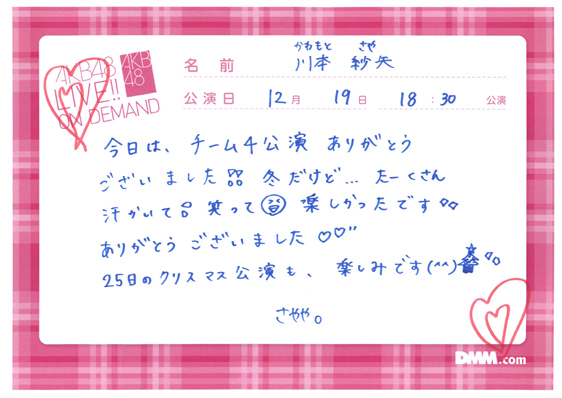 AKB48
LIVE!!
ON DEMAND
AKB
48
かわもと さや
名前 川本 紗矢
公演日 12月 19日 18:30 公演
今日は、チーム4公演 ありがとう
ございました 冬だけど… たーくさん
汗かいて 笑って 楽しかったです
ありがとう ございました♡♡”
25日のクリスマス公演も、楽しみです(^^)
さやや。
DMM.com